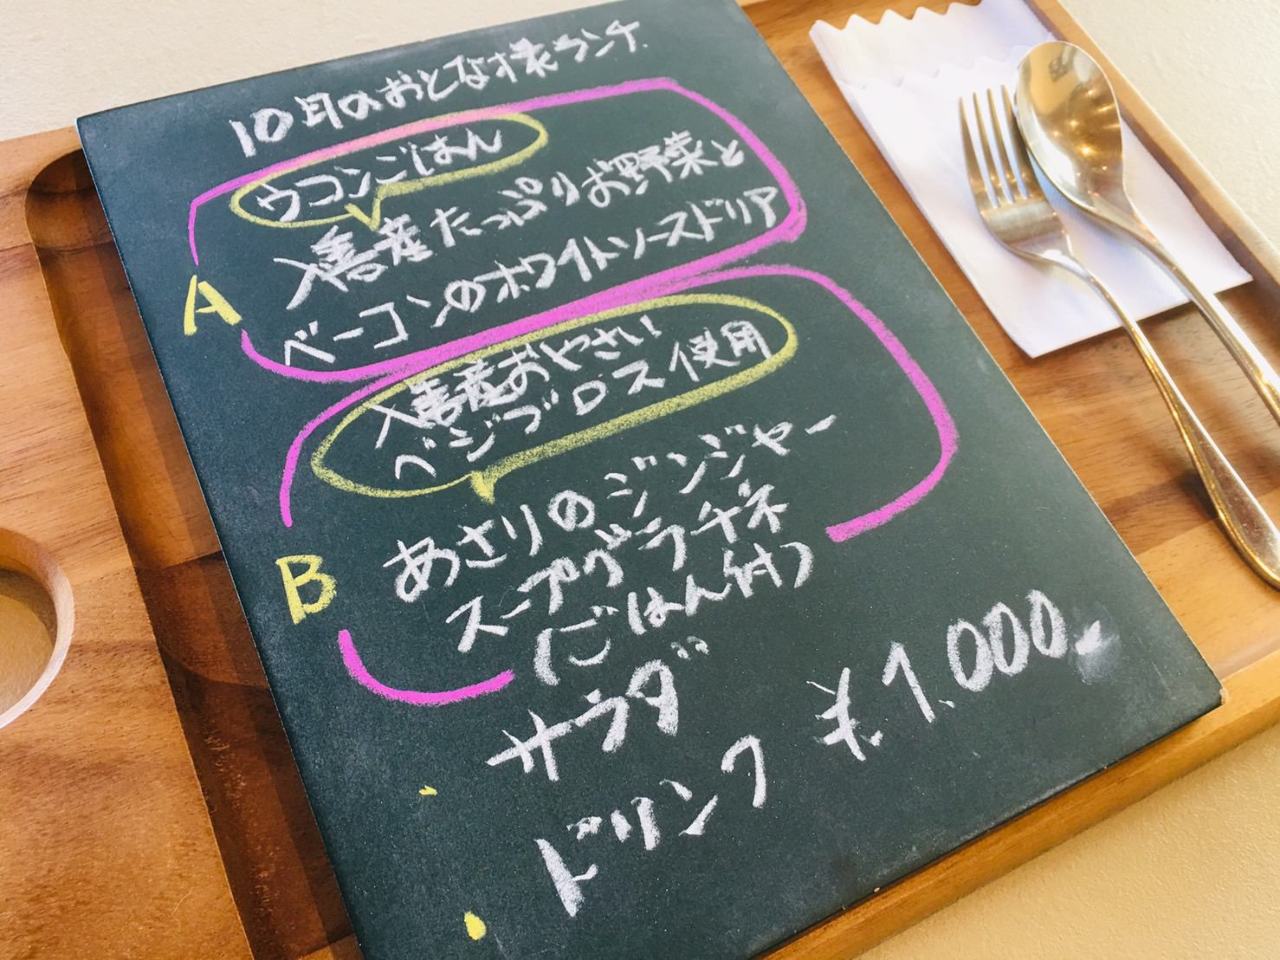 10月のおとな様ランチ
ウコンごはん
入善産たっぷりお野菜と
A
ベーコンのホワイトソースドリア
入善産おやさい
ベジブロス使用
あさりのジンジャー
B
スープグラチネ
(ごはん付)
サラダ
ドリンク ¥1.000